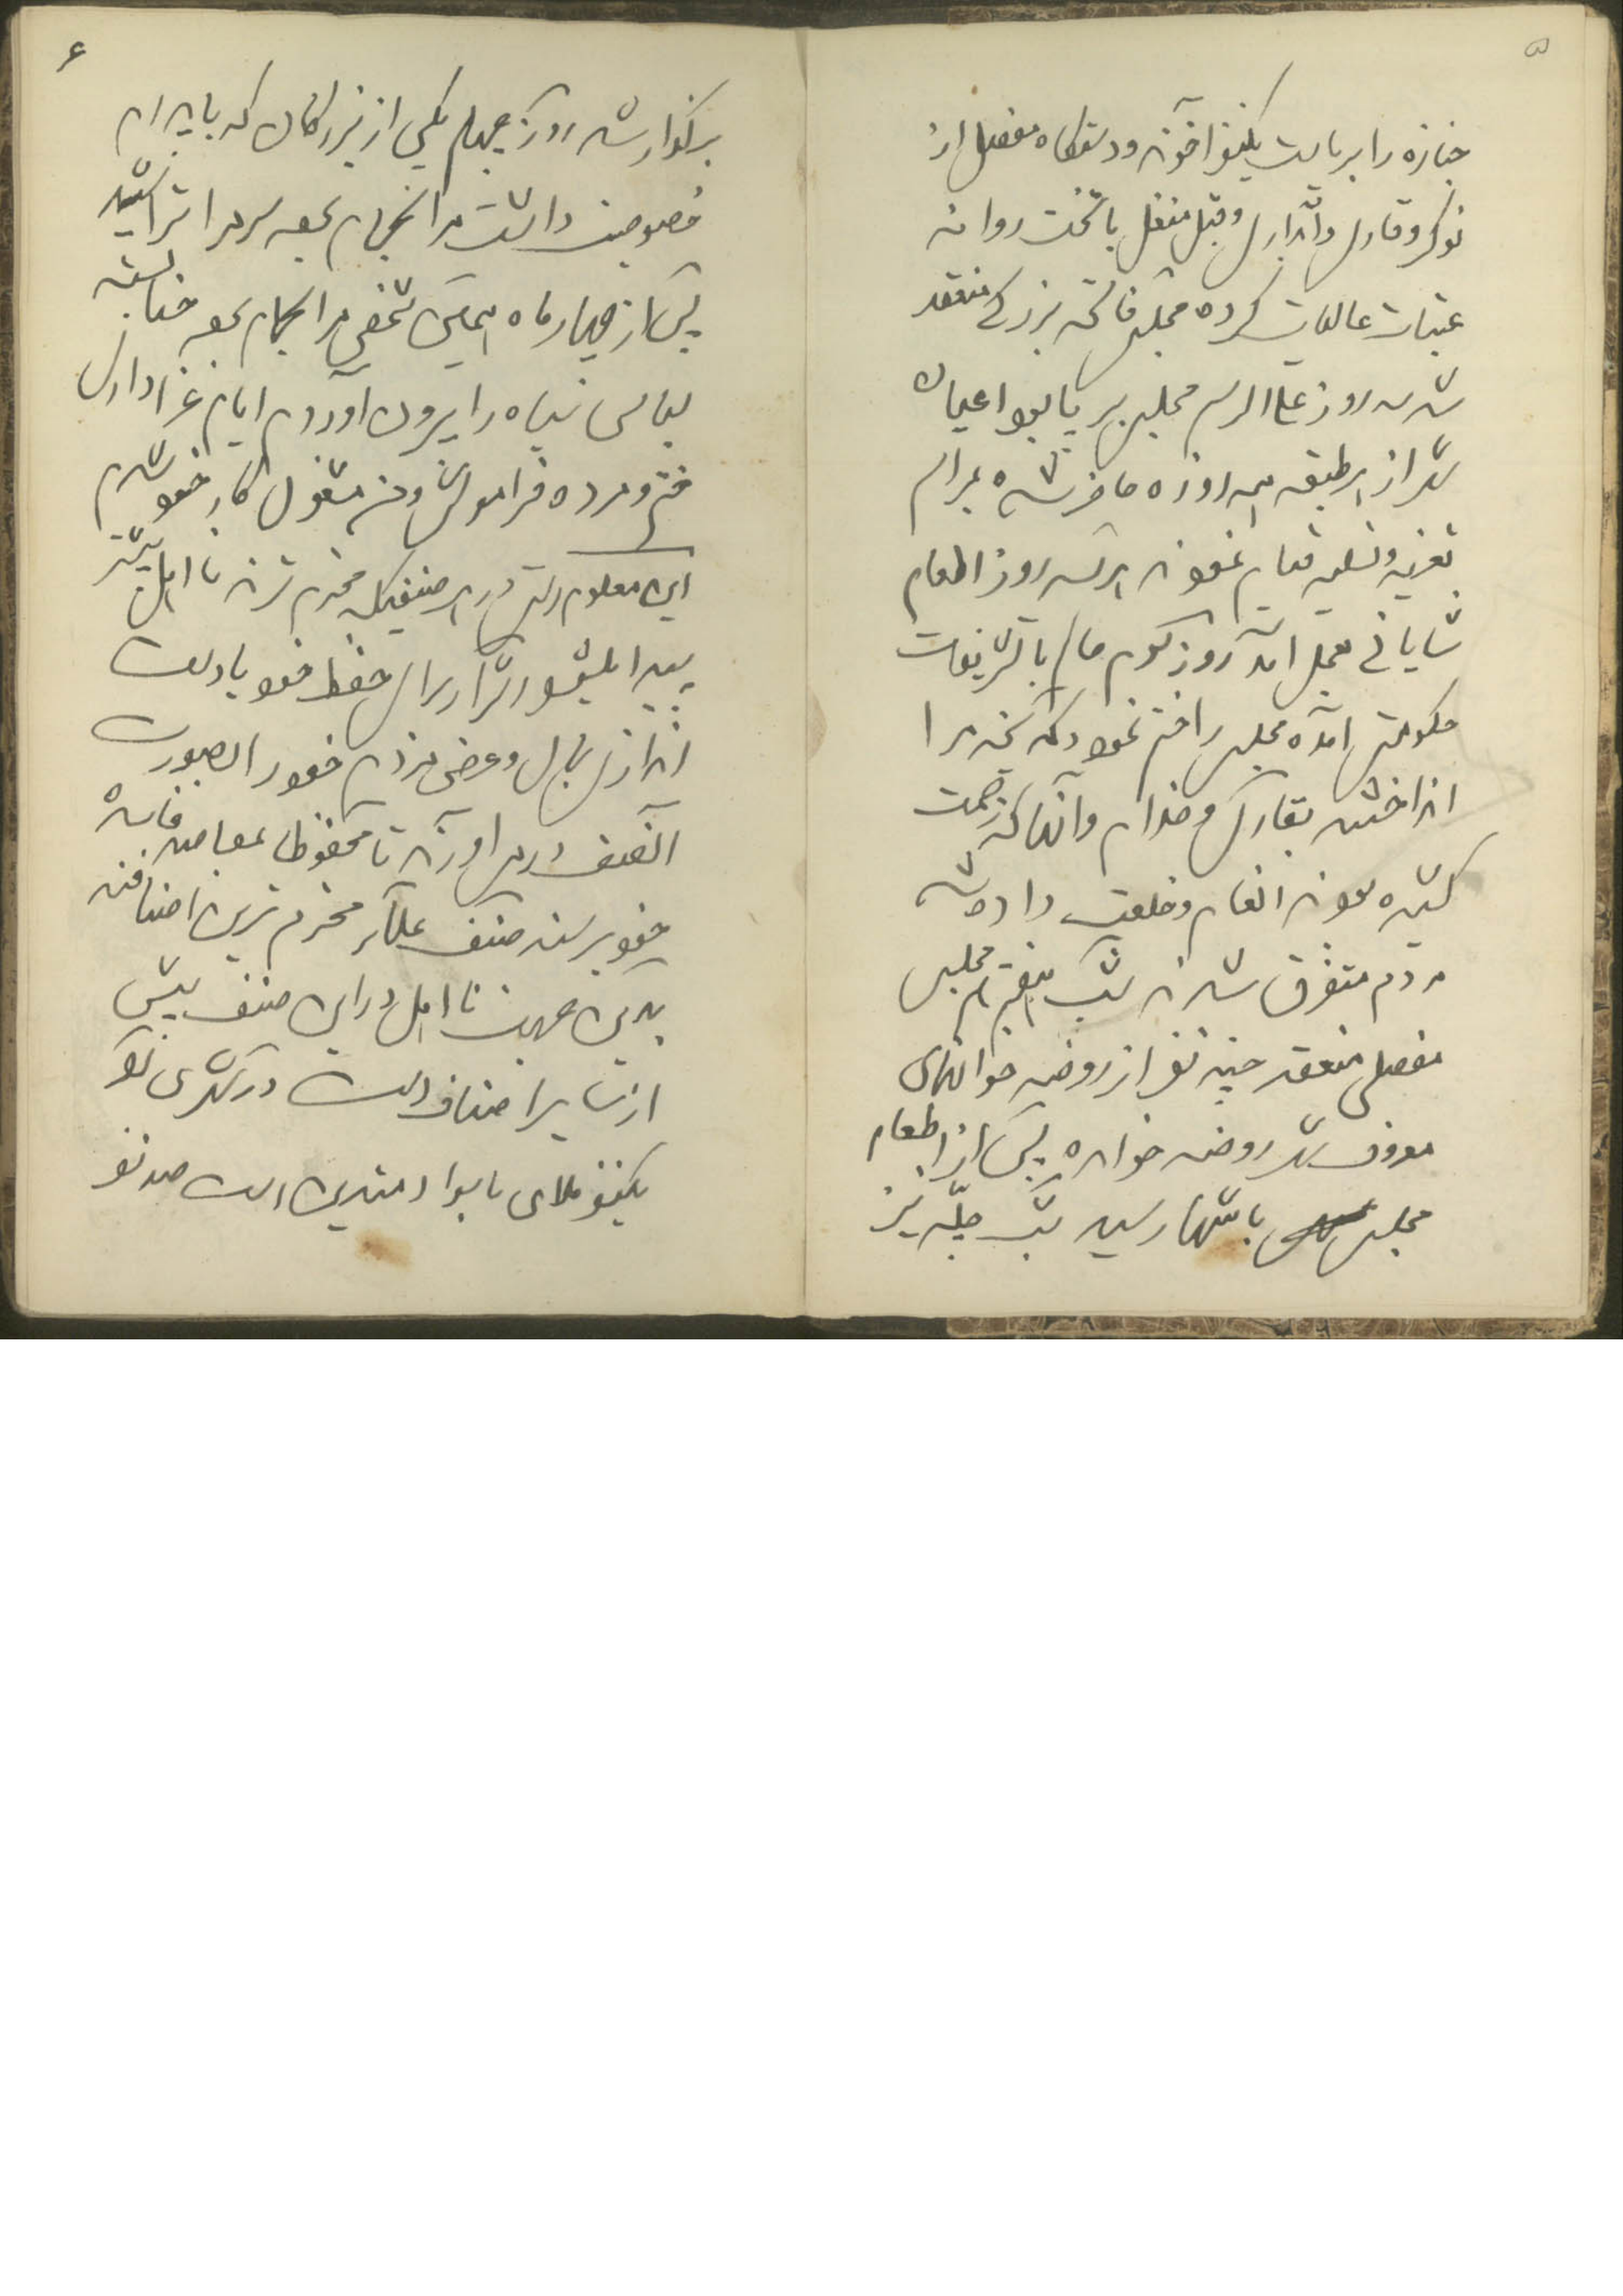 ۵
جنازه را بریاست یکنفر آخوند و دستگاه مفصل از
نوکر و قاری و آبداری و قبل منقل با تخت روانه
عتبات عالیات کرده مجلس فاتحه بزرگی منعقد
شد سه روز علی الرسم مجلس برپا بود اعیان
شهر از هر طبقه همه روزه حاضر شده بمراسم
تعزیه و تسلیه قیام نمودند هر سه روز اطعام
شایانی بعمل آمد روز سوم حاکم با تشریفات
حکومتی آمده مجلس را ختم نمود دکمه یخه مرا
انداختند بقاری و خدام و آنها که زحمت
کشیده بودند انعام و خلعت داده شد
مردم متفرق شدند شب هفتم هم مجلس
مفصلی منعقد چند نفر از روضه خوانهای
معروف شهر روضه خوانده پس از اطعام
مجلس بانتها رسید شب چلّه نیز
۶
برگذار شد روز چهلم یکی از بزرگان که با پدرم
خصوصیت داشت مرا بحمام برده سرم را تراشید
پس از چهار ماه همان شخص مرا بحمام برده حنا بسته
لباس سیاه را بیرون آوردم ایام عزاداری
ختم و مرده فراموش و من مشغول کار خود شدم
این معلوم است در هر صنفیکه محترم ترند نا اهل بیشتر
پیدا میشود اشرار برای حفظ خود یا دست
اندازی بمال و عرض مردم خود را بصورت
آنصنف در می آورند تا محفوظا بمقاصد فاسده
خود برسند صنف علما که محترم ترین اصنافند
بدین جهت نا اهل در این صنف بیش
از سایر اصناف است در شهری که
یکنفر ملای با سواد متدین است صد نفر